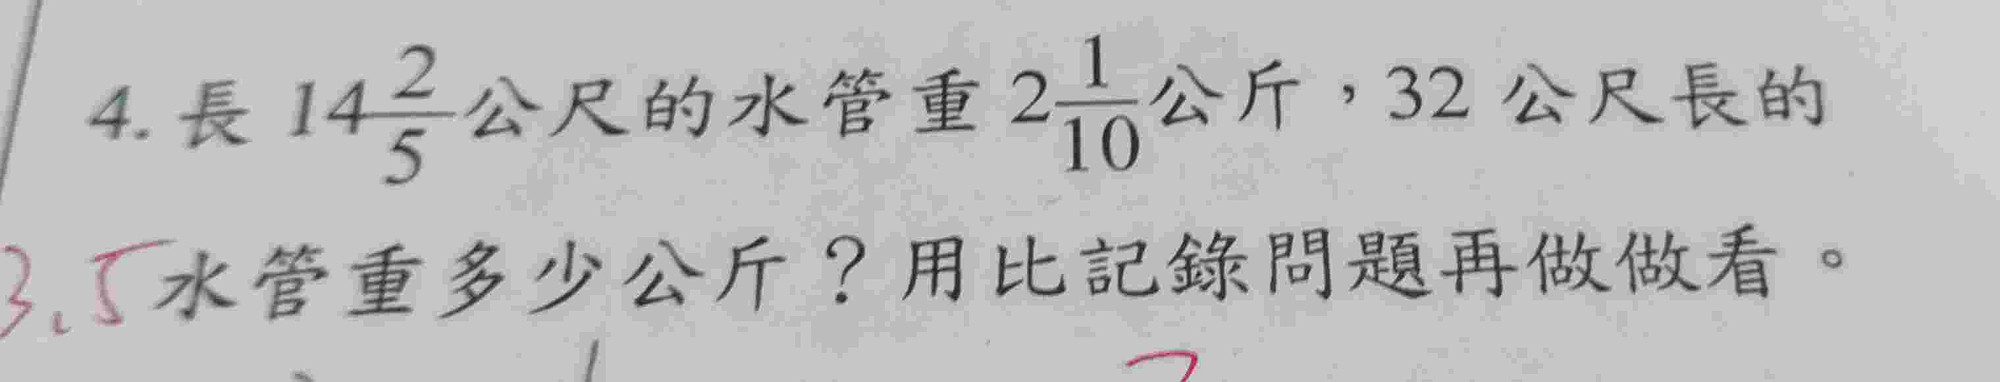 4. 長 14 2/5 公尺的水管重 2 1/10 公斤，32 公尺長的
3.5 水管重多少公斤？用比記錄問題再做做看。